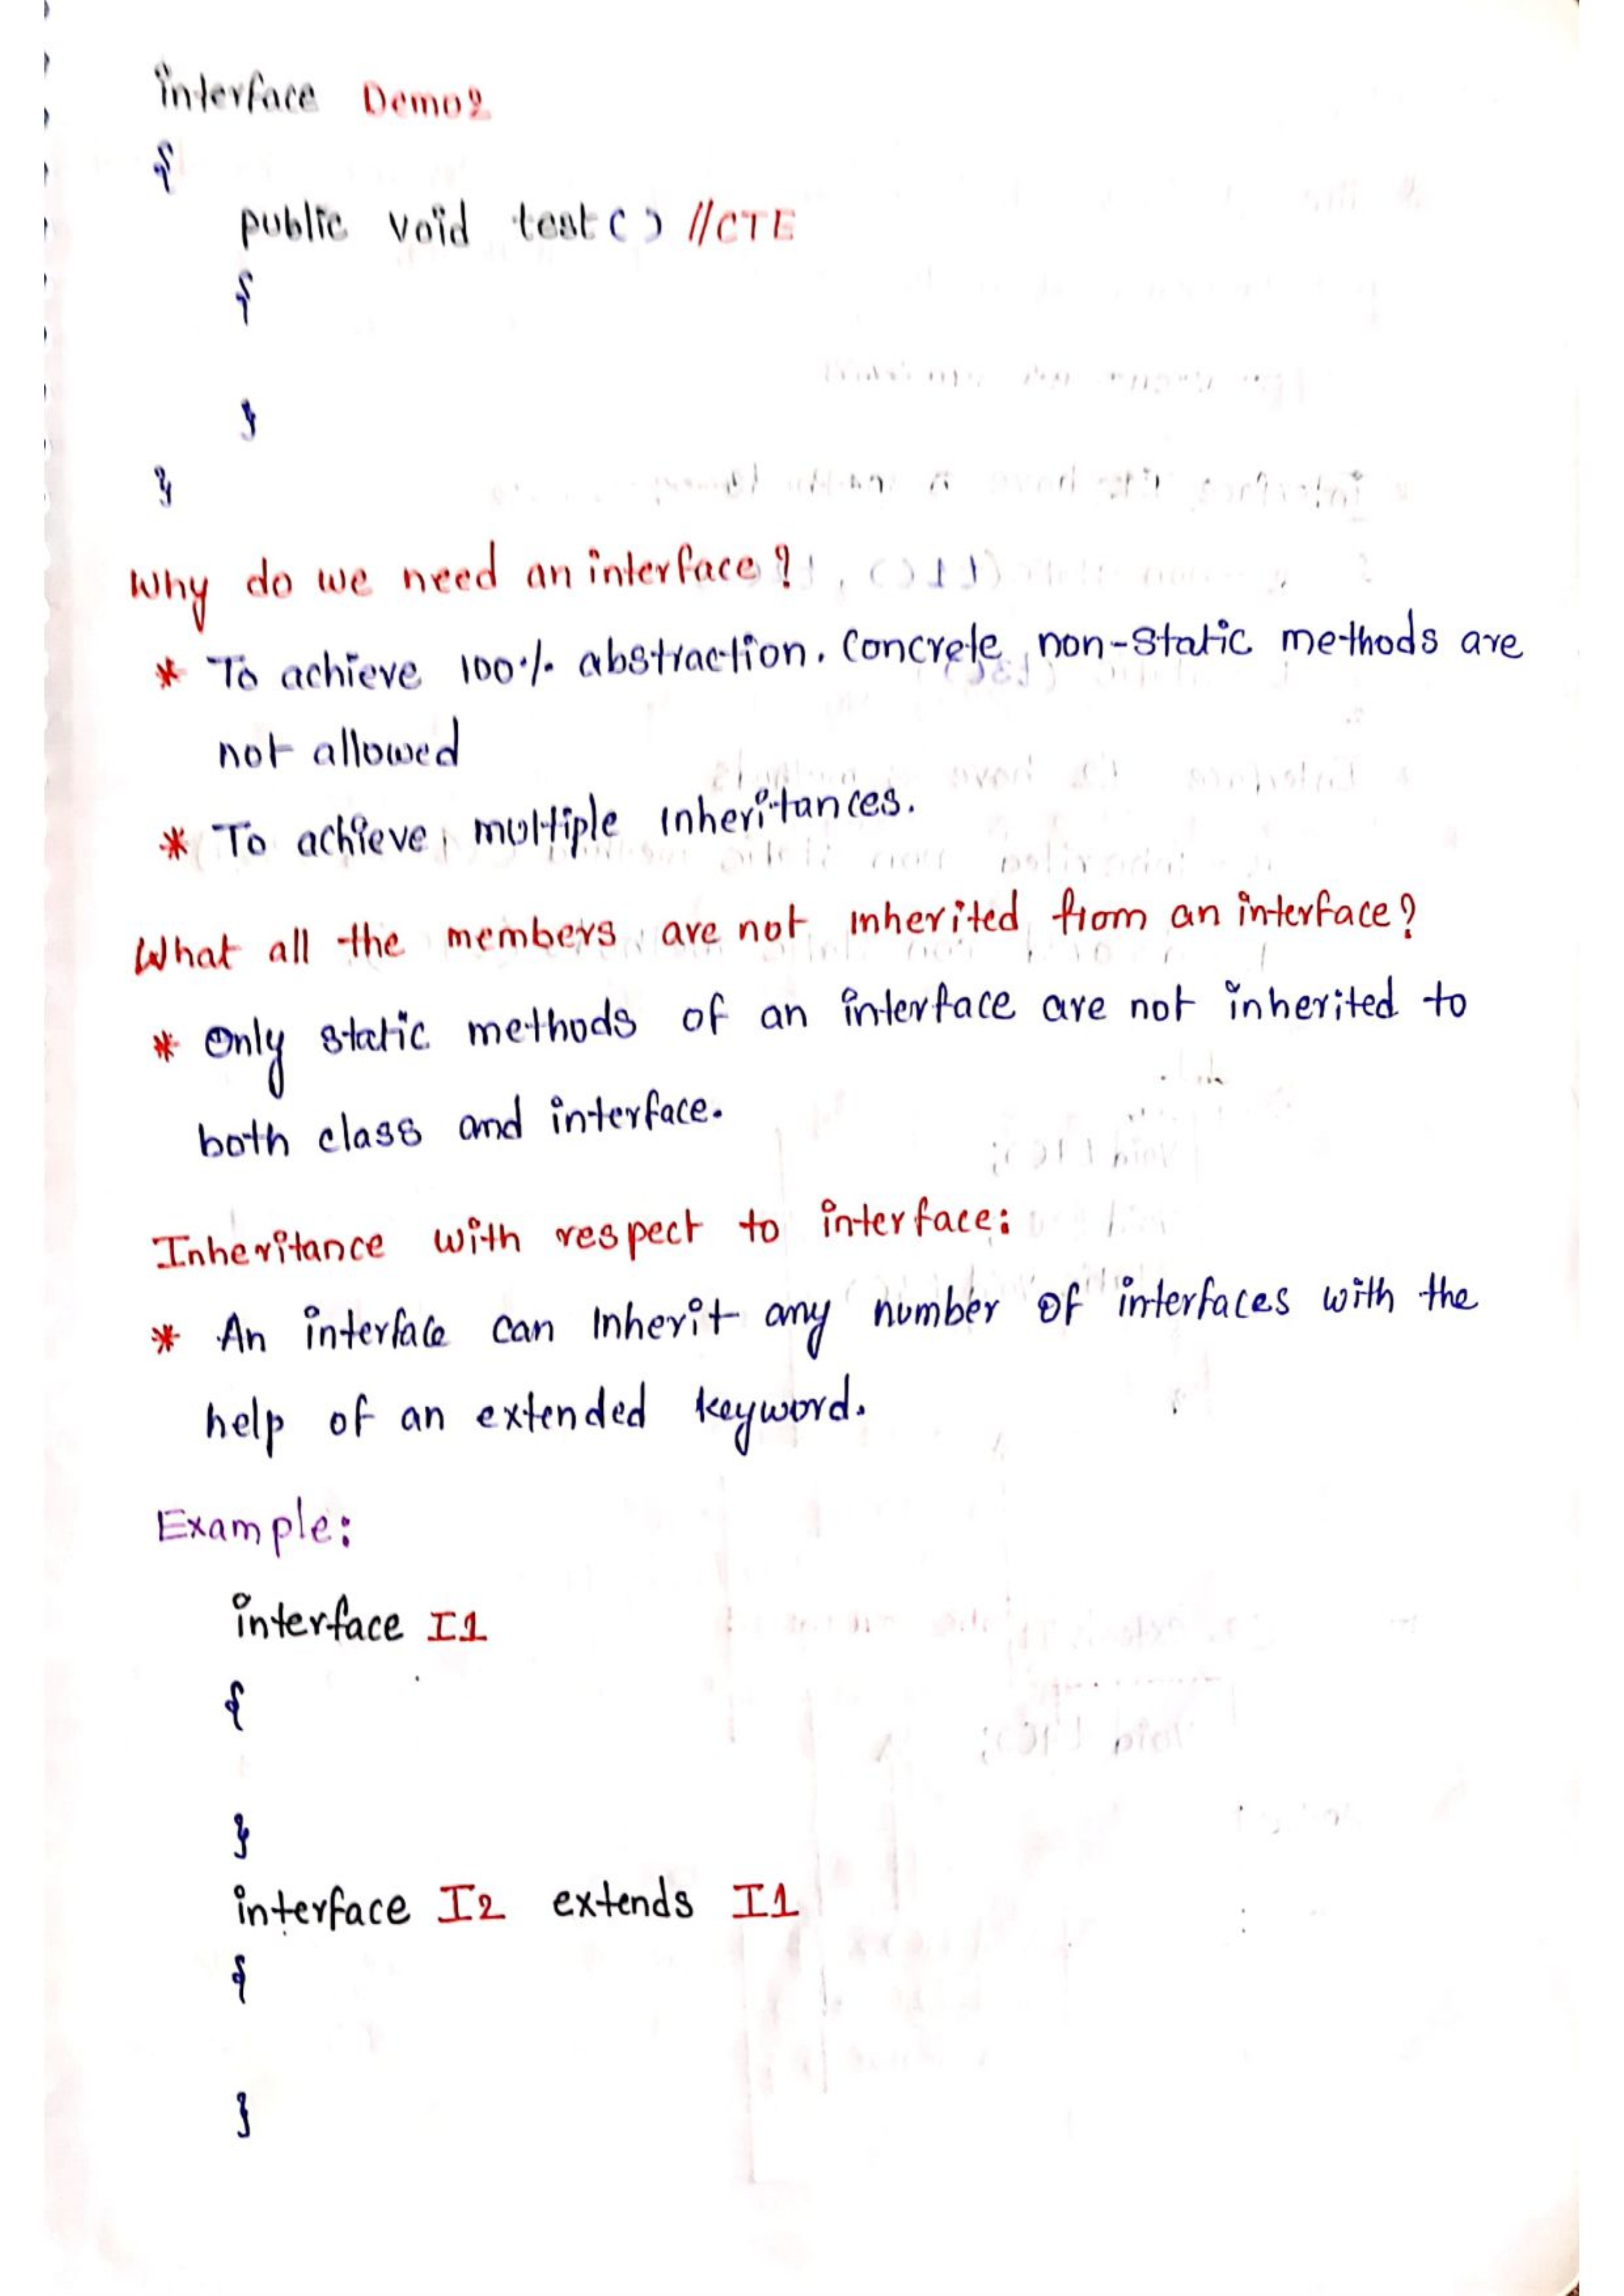 interface Demo2
{
public void test() //CTE
{
}
}
Why do we need an interface?
* To achieve 100% abstraction. Concrete non-static methods are
not allowed
* To achieve multiple inheritances.
What all the members are not inherited from an interface?
* Only static methods of an interface are not inherited to
both class and interface.
Inheritance with respect to interface:
* An interface can inherit any number of interfaces with the
help of an extended keyword.
Example:
interface I1
{
}
interface I2 extends I1
{
}